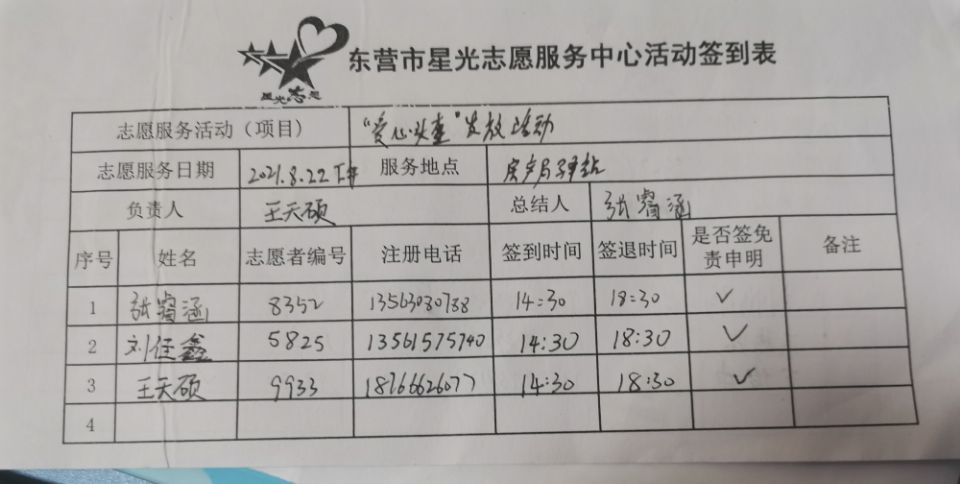 东营市星光志愿服务中心活动签到表
星光志愿
志愿服务活动（项目） “爱心头盔”发放活动
志愿服务日期 2021.8.22下午 服务地点 房产局驿站
负责人 王天硕 总结人 张睿涵
序号 姓名 志愿者编号 注册电话 签到时间 签退时间 是否签免责申明 备注
1 张睿涵 8352 13563030738 14:30 18:30 ✓
2 刘任鑫 5825 13561575740 14:30 18:30 ✓
3 王天硕 9933 18766626077 14:30 18:30 ✓
4